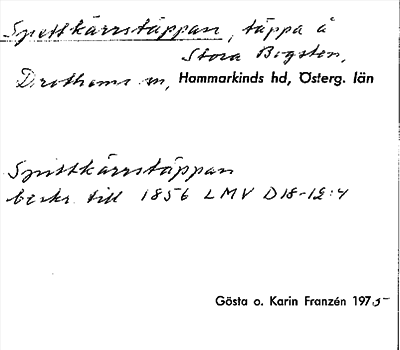 Spettkärrstäppan, täppa å
Stora Bogsten,
Drothems sn, Hammarkinds hd, Österg. län
Spettkärrstäppan
beskr till 1856 LMV D18-12:4
Gösta o. Karin Franzén 1975